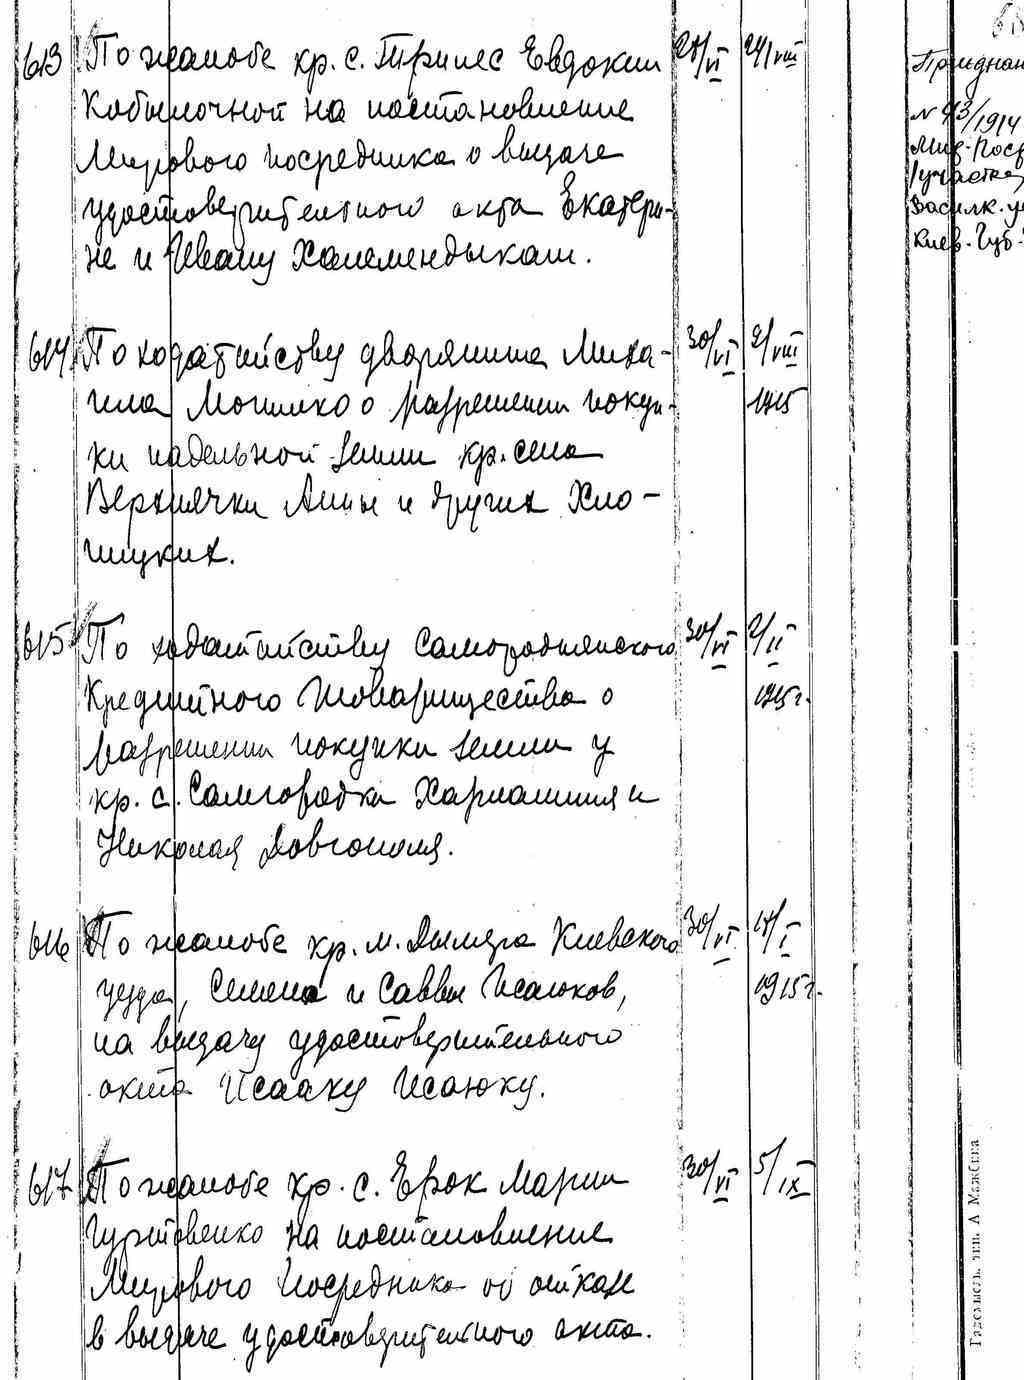 613 По жалобе кр. с. Трилес Евдокии 24/VIII
Кобылочной на постановление
Мирового посредника о выдаче
удостоверительного акта Екатери-
не и Ивану Халемендыкам.
N 43/1914
Мир. Поср
1 участка
Васильк. у
Киев. Губ.
614 По ходатайству дворянина Миха- 30/VI 2/VIII
ила Могилко о разрешении покуп- 1915
ки надельной земли кр. села
Верхнячки Анны и других Хло-
ицких.
615 По ходатайству Самгородянского 30/VI 2/II
Кредитного Товарищества о 1915 г.
разрешении покупки земли у
кр. с. Самгородка Харлампия и
Николая Довгополя.
616 По жалобе кр. м. Дымера Киевского 30/VI 17/I
уезда, Семена и Саввы Исаюков, 1915 г.
на выдачу удостоверительного
акта Исааку Исаюку.
617 По жалобе кр. с. Ерок Марии 30/VI 5/IX
Гуртовенко на постановление
Мирового Посредника об отказе
в выдаче удостоверительного акта.